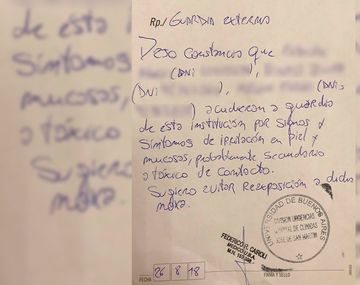 Rp./ GUARDIA EXTERNA
Dejo constancia que
(DNI ),
(DNI ), (DNI
) acudieron a guardia
de esta institución por signos y
síntomas de irritación en piel y
mucosas, probablemente secundario
a tóxico de contacto.
Sugiero evitar reexposición a dicho
de esta
síntomas
mucosas,
a tóxico
Sugiero
UNIVERSIDAD DE BUENOS AIRES
DIVISION URGENCIAS
HOSPITAL DE CLINICAS
JOSE DE SAN MARTIN
FEDERICO R. CARIOLI
MEDICO U.B.A.
FECHA 26 8 18
FIRMA Y SELLO